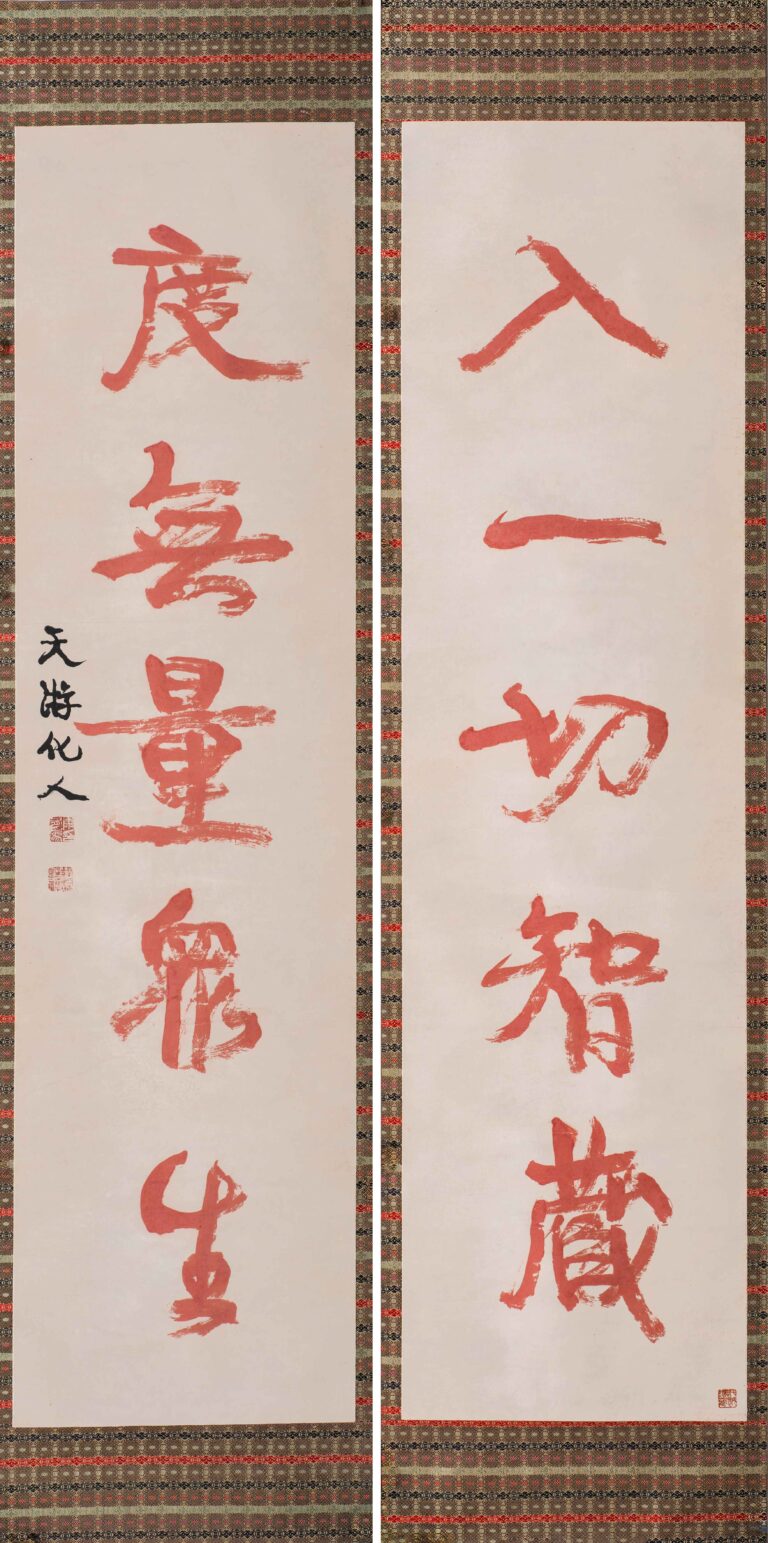 入一切智藏
度無量眾生
天游化人